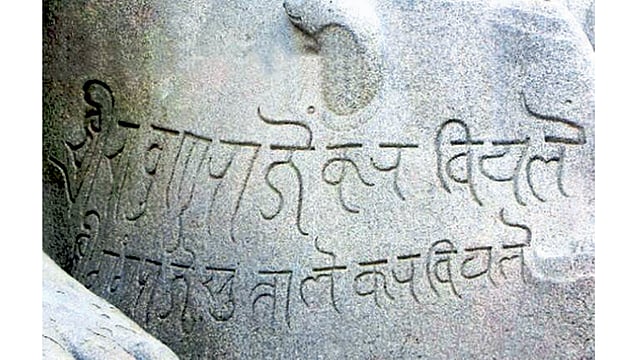 श्रीचावुण्डराजें करवियले
श्रीगंगराजे सुत्ताले करवियले